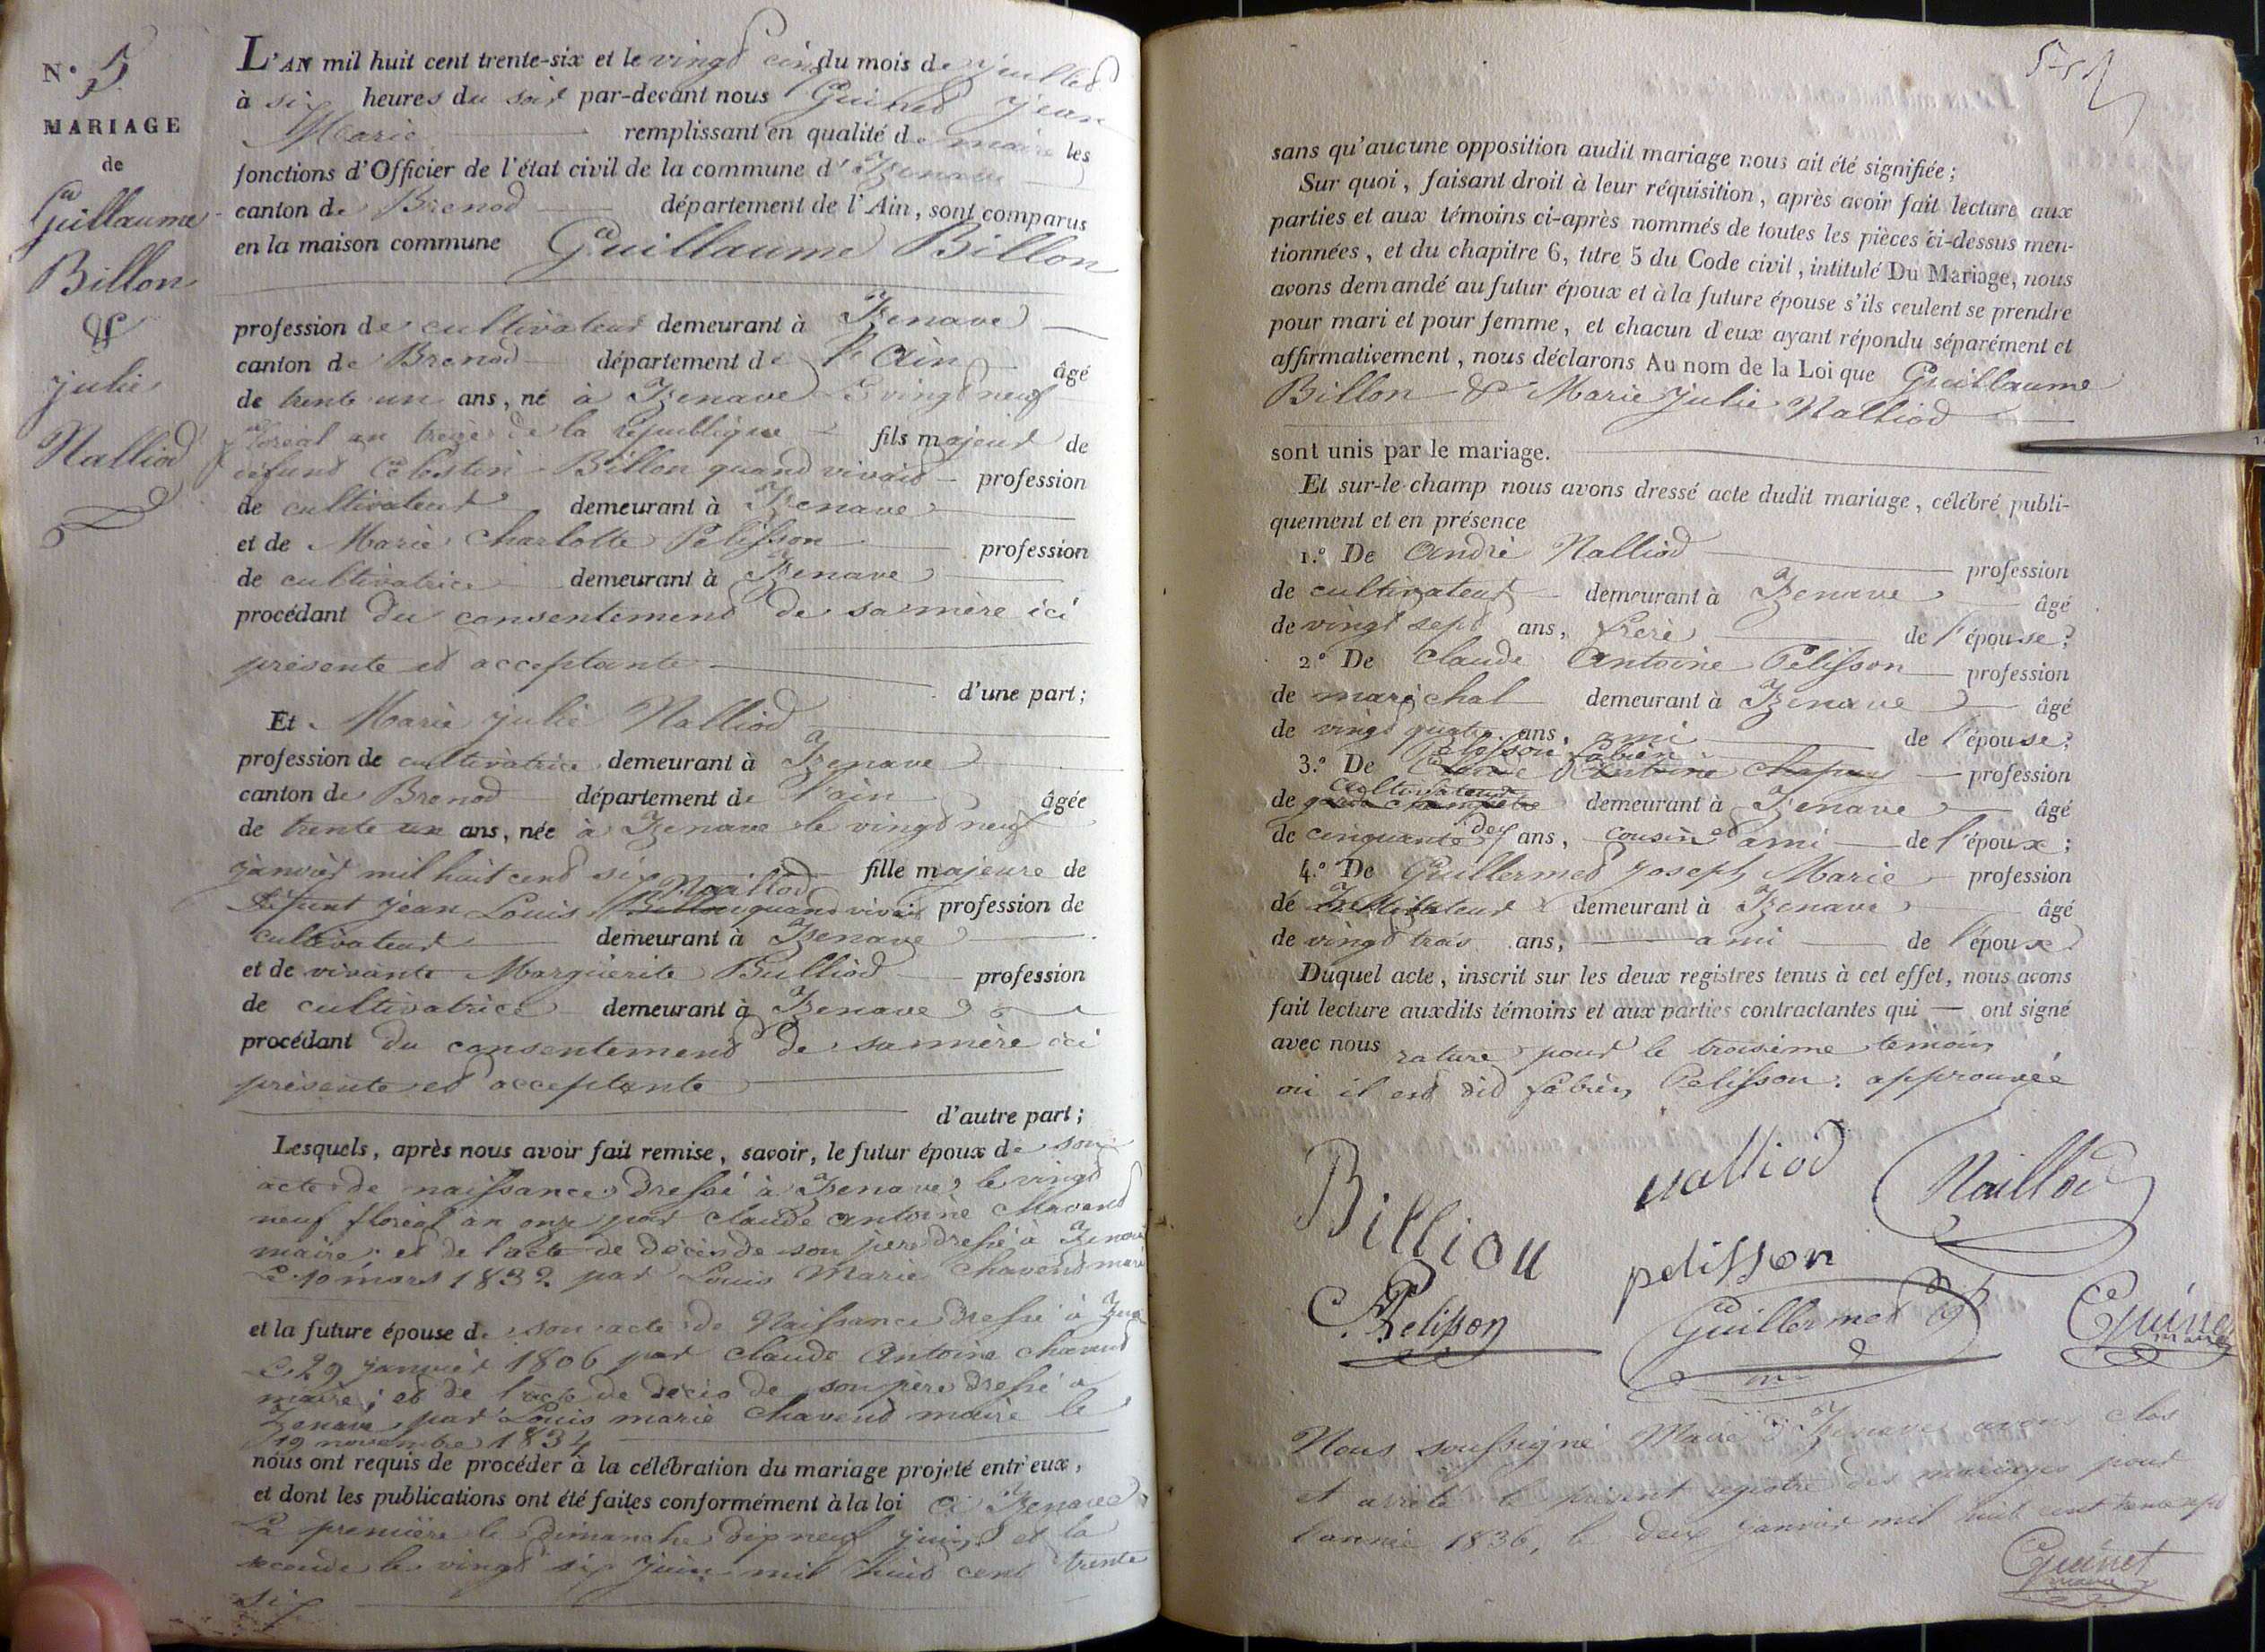 N.° 5
MARIAGE
de
Guillaume
Billon
&
julie
Nalliod
L'AN mil huit cent trente-six et le vingt cinq du mois de juillet
à six heures du soir par-devant nous Guinet jean
Marie remplissant en qualité de maire les
fonctions d'Officier de l'état civil de la commune d'Izenave
canton de Brenod département de l'Ain, sont comparus
en la maison commune Guillaume Billon
profession de cultivateur demeurant à Izenave
canton de Brenod département de l'Ain âgé
de trente un ans, né à Izenave le vingt neuf
floréal an treize de la république fils majeur de
défunt Célestin Billon quand vivait profession
de cultivateur demeurant à Izenave
et de Marie Charlotte Pelisson profession
de cultivatrice demeurant à Izenave
procédant du consentement de sa mère ici
présente et acceptante
d'une part;
Et Marie julie Nalliod
profession de cultivatrice demeurant à Izenave
canton de Brenod département de l'ain âgée
de trente un ans, née à Izenave le vingt neuf
janvier mil huit cent six fille majeure de
Nailliod
défunt jean Louis Billon quand vivait profession de
cultivateur demeurant à Izenave
et de vivante Marguerite Bulliod profession
de cultivatrice demeurant à Izenave
procédant du consentement de sa mère ici
présente et acceptante
d'autre part;
Lesquels, après nous avoir fait remise, savoir, le futur époux de son
acte de naissance dressé à Izenave le vingt
neuf floréal an onze par claude antoine Chavent
maire; et de l'acte de décès de son père dressé à Izenave
Le 10 mars 1832 par Louis Marie Chavent maire
et la future épouse de son acte de Naissance dressé à
Le 29 janvier 1806 par claude Antoine chavent
maire; et de l'acte de décès de son père dressé à
Izenave par Louis marie chavend maire le
19 novembre 1834
nous ont requis de procéder à la célébration du mariage projeté entr'eux,
et dont les publications ont été faites conformément à la loi à Izenave
La première le dimanche dix neuf juin et la
seconde le vingt six juin mil huit cent trente
six
sans qu'aucune opposition audit mariage nous ait été signifiée;
Sur quoi, faisant droit à leur réquisition, après avoir fait lecture aux
parties et aux témoins ci-après nommés de toutes les pièces ci-dessus men-
tionnées, et du chapitre 6, titre 5 du Code civil, intitulé Du Mariage, nous
avons demandé au futur époux et à la future épouse s'ils veulent se prendre
pour mari et pour femme, et chacun d'eux ayant répondu séparément et
affirmativement, nous déclarons Au nom de la Loi que Guillaume
Billon & Marie Julie Nalliod
sont unis par le mariage.
Et sur-le-champ nous avons dressé acte dudit mariage, célébré publi-
quement et en présence
1.° De andré Nalliod profession
de cultivateur demeurant à Izenave âgé
de vingt sept ans, frère de l'épouse;
2.° De claude Antoine Pelisson profession
de maréchal demeurant à Izenave âgé
de vingt quatre ans, ami de l'épouse;
Pelisson fabien
3.° De Claude Antoine Chapuy profession
cultivateur
de garde champêtre demeurant à Izenave âgé
de cinquante deux ans, cousin et ami de l'époux;
4.° De Guillermet Joseph Marie profession
de demeurant à Izenave âgé
de vingt trois ans, ami de l'époux
Duquel acte, inscrit sur les deux registres tenus à cet effet, nous avons
fait lecture auxdits témoins et aux parties contractantes qui — ont signé
avec nous rature pour le troisième témoin
où il est dit fabien Pelisson. approuvée
Billiou
nalliod
Naillod
pelisson
Pelisson
Guillermet
Guinet
maire
Nous soussigné Maire d'Izenave avons clos
et arrêté le présent registre des mariages pour
l'année 1836, le deux janvier mil huit cent trente sept
Guinet
maire